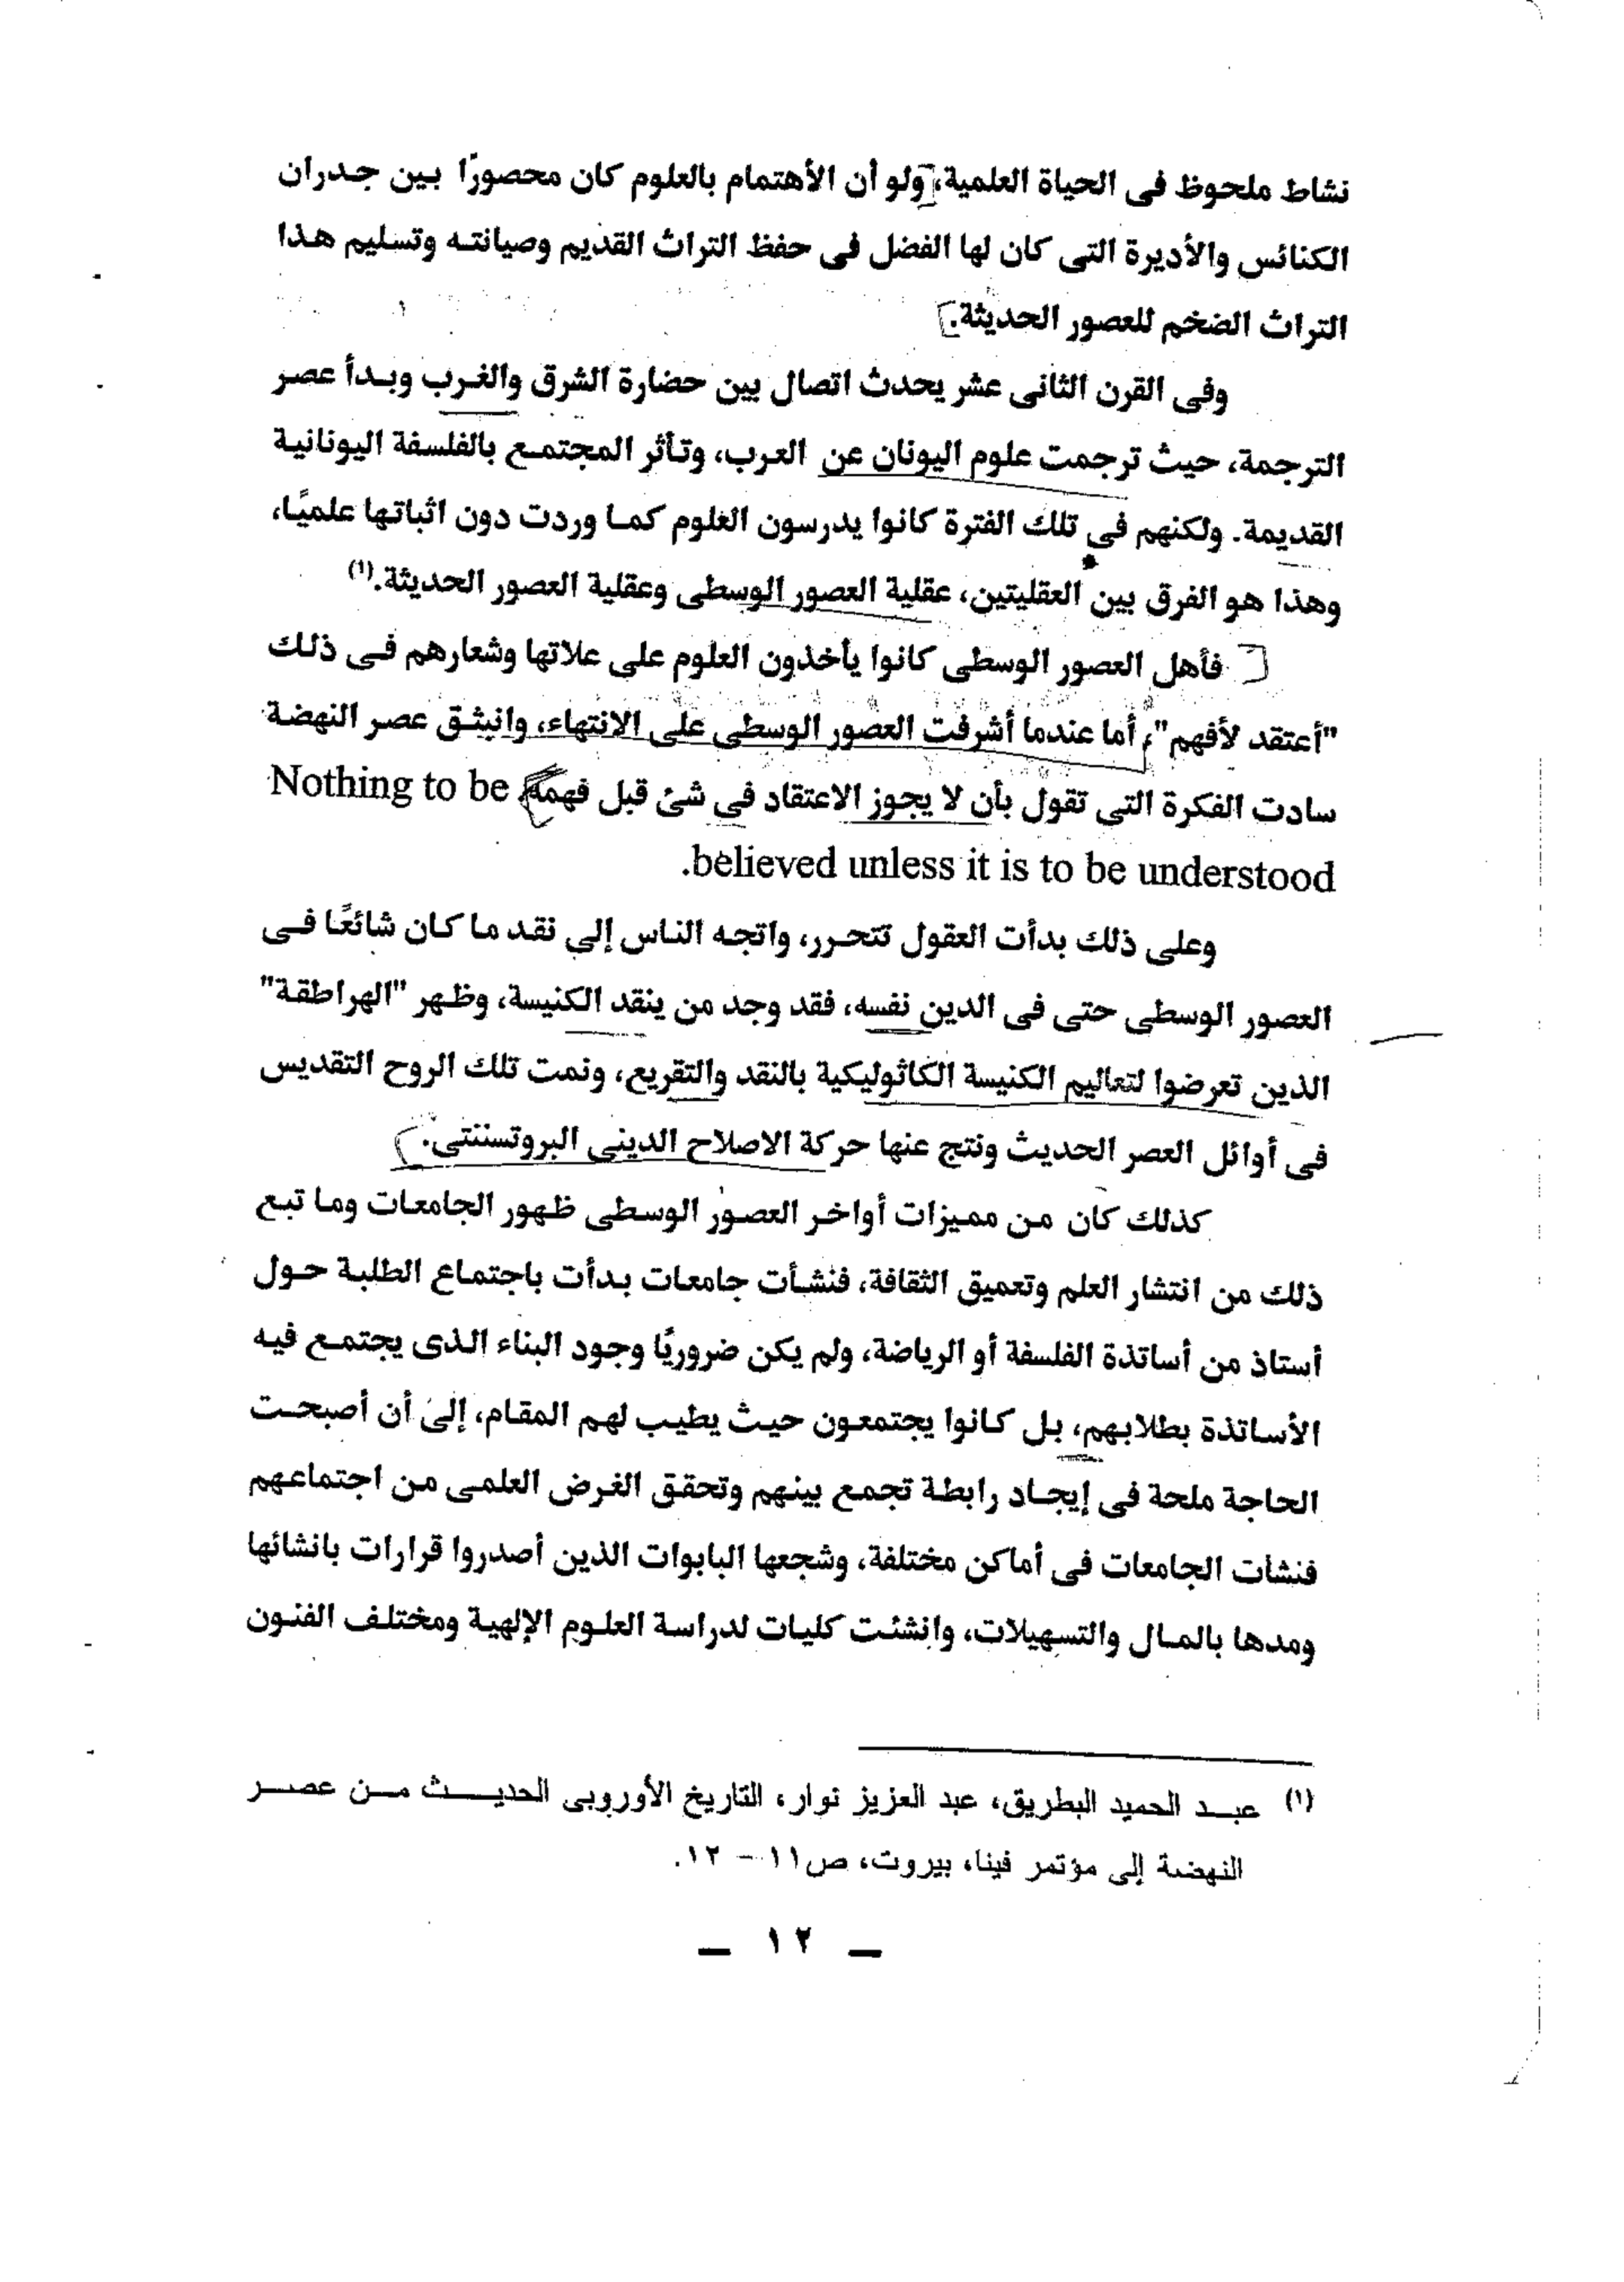 نشاط ملحوظ فى الحياة العلمية، ولو أن الأهتمام بالعلوم كان محصورًا بين جدران
الكنائس والأديرة التى كان لها الفضل فى حفظ التراث القديم وصيانته وتسليم هذا
التراث الضخم للعصور الحديثة.
وفى القرن الثانى عشر يحدث اتصال بين حضارة الشرق والغرب وبدأ عصر
الترجمة، حيث ترجمت علوم اليونان عن العرب، وتأثر المجتمع بالفلسفة اليونانية
القديمة. ولكنهم فى تلك الفترة كانوا يدرسون العلوم كما وردت دون اثباتها علميًا،
وهذا هو الفرق بين العقليتين، عقلية العصور الوسطى وعقلية العصور الحديثة.(١)
فأهل العصور الوسطى كانوا يأخذون العلوم على علاتها وشعارهم فى ذلك
"أعتقد لأفهم"، أما عندما أشرفت العصور الوسطى على الانتهاء، وانبثق عصر النهضة
سادت الفكرة التى تقول بأن لا يجوز الاعتقاد فى شئ قبل فهمه Nothing to be
believed unless it is to be understood.
وعلى ذلك بدأت العقول تتحرر، واتجه الناس إلى نقد ما كان شائعًا فى
العصور الوسطى حتى فى الدين نفسه، فقد وجد من ينقد الكنيسة، وظهر "الهراطقة"
الذين تعرضوا لتعاليم الكنيسة الكاثوليكية بالنقد والتقريع، ونمت تلك الروح التقديس
فى أوائل العصر الحديث ونتج عنها حركة الاصلاح الدينى البروتسننتى.
كذلك كان من مميزات أواخر العصور الوسطى ظهور الجامعات وما تبع
ذلك من انتشار العلم وتعميق الثقافة، فنشأت جامعات بدأت باجتماع الطلبة حول
أستاذ من أساتذة الفلسفة أو الرياضة، ولم يكن ضروريًا وجود البناء الذى يجتمع فيه
الأساتذة بطلابهم، بل كانوا يجتمعون حيث يطيب لهم المقام، إلى أن أصبحت
الحاجة ملحة فى إيجاد رابطة تجمع بينهم وتحقق الغرض العلمى من اجتماعهم
فنشات الجامعات فى أماكن مختلفة، وشجعها البابوات الذين أصدروا قرارات بانشائها
ومدها بالمال والتسهيلات، وانشئت كليات لدراسة العلوم الإلهية ومختلف الفنون
(١) عبد الحميد البطريق، عبد العزيز نوار، التاريخ الأوروبى الحديث من عصر
النهضة إلى مؤتمر فينا، بيروت، ص١١ – ١٢.
– ١٢ –